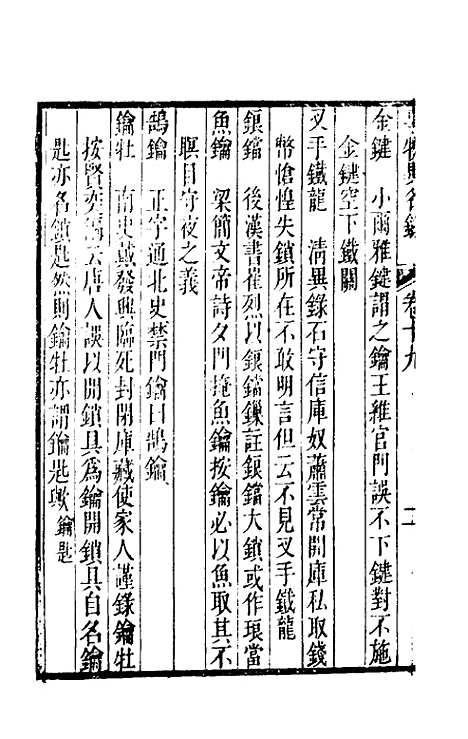 事物異名錄 卷十九 二
金鍵　小爾雅鍵謂之鑰王維宮門誤不下鍵對不施
金鍵空下鐵關
叉手鐵龍　淸異錄石守信庫奴蕭雲常開庫私取錢
幣愴惶失鎖所在不敢明言但云不見叉手鐵龍
鋃鐺　後漢書崔烈以鋃鐺鏁註鋃鐺大鎖或作琅當
魚鑰　梁簡文帝詩夕門掩魚鑰按鑰必以魚取其不
瞑目守夜之義
鵠鑰　正字通北史禁門鑰曰鵠鑰
鑰牡　南史戴發興臨死封閉庫藏使家人謹錄鑰牡
按賢奕篇云唐人誤以開鎖具爲鑰開鎖具自名鑰
匙亦名鎖匙然則鑰牡亦謂鑰匙歟 鑰匙